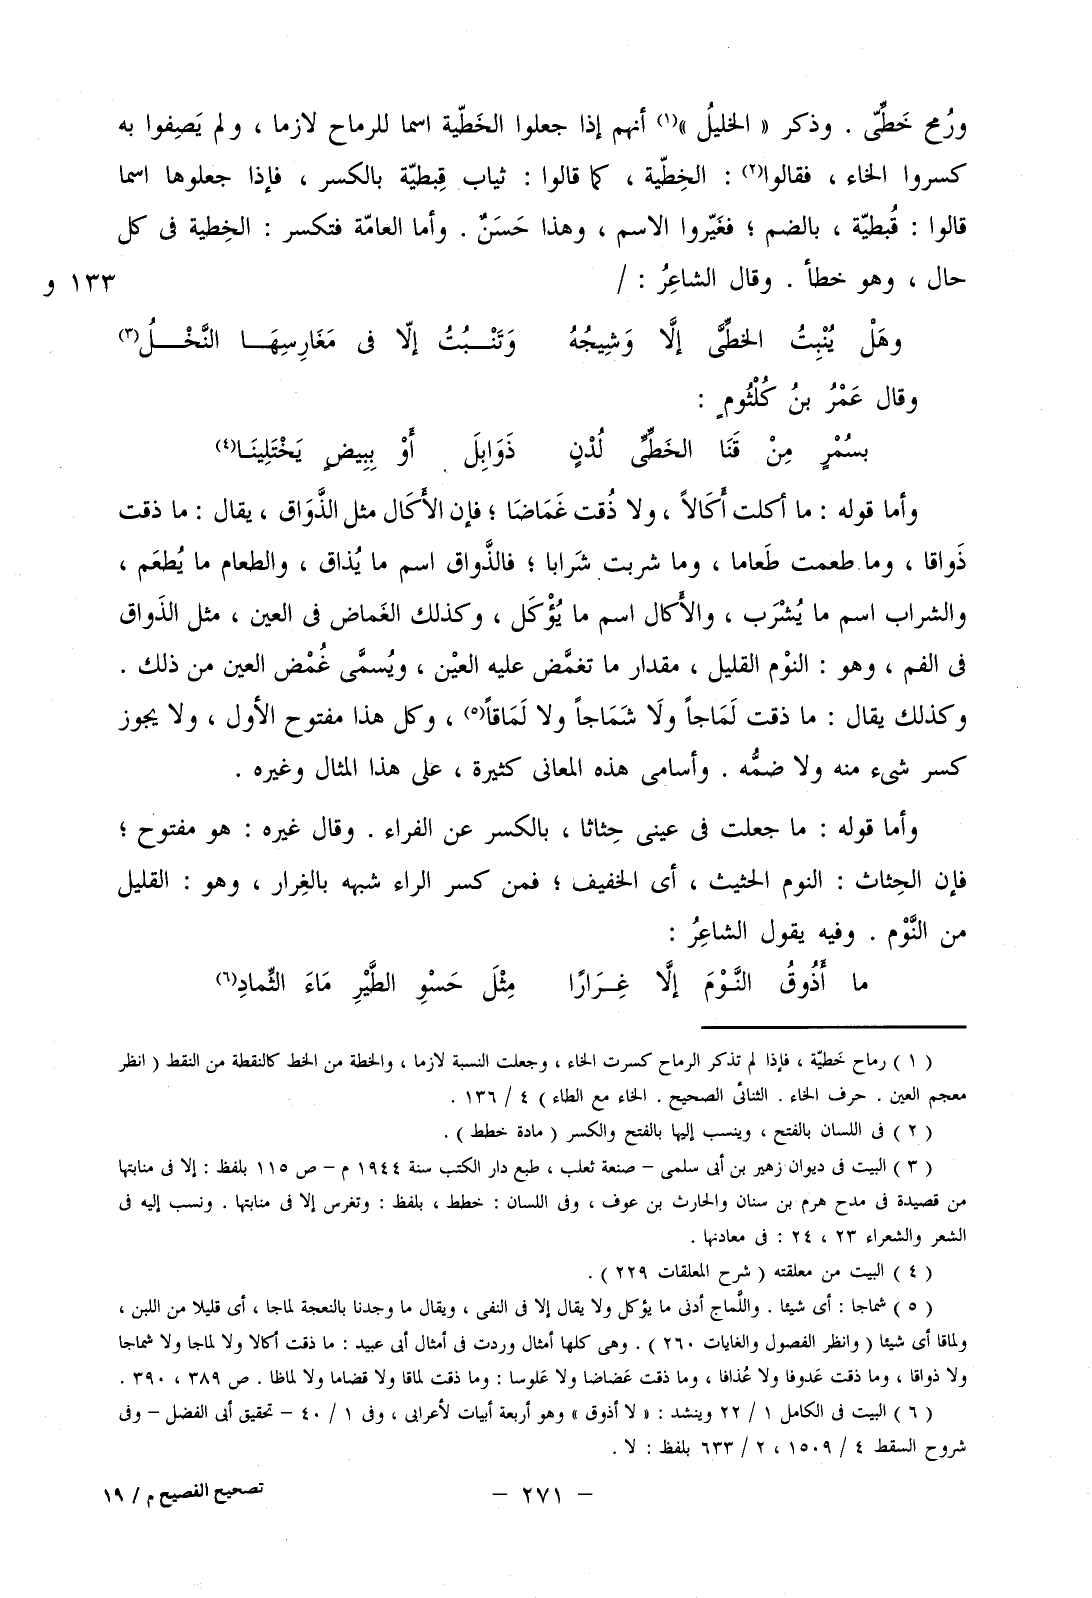 ورُمح خَطِّى . وذكر « الخليلُ »(١) أنهم إذا جعلوا الخَطّية اسما للرماح لازما ، ولم يَصِفوا به
كسروا الخاء ، فقالوا(٢) : الخِطّية ، كما قالوا : ثياب قِبطيّة بالكسر ، فإذا جعلوها اسما
قالوا : قُبطيّة ، بالضم ؛ فغَيّروا الاسم ، وهذا حَسَنٌ . وأما العامّة فتكسر : الخِطية فى كل
حال ، وهو خطأ . وقال الشاعِرُ : / ١٣٣ و
وهَلْ يُنْبِتُ الخطِّىَّ إلَّا وَشِيجُهُ وَتَنْـبُتُ إلّا فى مَغَارِسِهَـا النَّخْـلُ(٣)
وقال عَمْرُ بنُ كُلْثُومٍ :
بسُمْرٍ مِنْ قَنَا الخطِّىِّ لُدْنٍ ذَوَابِلَ أَوْ بِبِيضٍ يَخْتَلِينَـا(٤)
وأما قوله : ما أكلت أَكَالاً ، ولا ذُقت غَمَاضَا ؛ فإن الأَكَال مثل الذَّوَاق ، يقال : ما ذقت
ذَواقا ، وما طعمت طَعاما ، وما شربت شَرابا ؛ فالذَّواق اسم ما يُذاق ، والطعام ما يُطعَم ،
والشراب اسم ما يُشْرَب ، والأَكال اسم ما يُؤْكَل ، وكذلك الغَماض فى العين ، مثل الذَواق
فى الفم ، وهو : النوْم القليل ، مقدار ما تغمَّض عليه العيْن ، ويُسمَّى غُمْض العين من ذلك .
وكذلك يقال : ما ذقت لَمَاجاً ولَا شَمَاجاً ولا لَمَاقاً(٥) ، وكل هذا مفتوح الأول ، ولا يجوز
كسر شىء منه ولا ضمُّه . وأسامى هذه المعانى كثيرة ، على هذا المثال وغيره .
وأما قوله : ما جعلت فى عينى حِثاثا ، بالكسر عن الفراء . وقال غيره : هو مفتوح ؛
فإن الحِثاث : النوم الحثيث ، أى الخفيف ؛ فمن كسر الراء شبهه بالغِرار ، وهو : القليل
من النَّوْم . وفيه يقول الشاعِرُ :
ما أَذُوقُ النَّـوْمَ إلَّا غِـرَارًا مِثْلَ حَسْوِ الطَّيْرِ مَاءَ الثِّمادِ(٦)
( ١ ) رماح خَطيّة ، فإذا لم تذكر الرماح كسرت الخاء ، وجعلت النسبة لازما ، والخطة من الخط كالنقطة من النقط ( انظر
معجم العين . حرف الخاء . الثنائى الصحيح . الخاء مع الطاء ) ٤ / ١٣٦ .
( ٢ ) فى اللسان بالفتح ، وينسب إليها بالفتح والكسر ( مادة خطط ) .
( ٣ ) البيت فى ديوان زهير بن أبى سلمى – صنعة ثعلب ، طبع دار الكتب سنة ١٩٤٤ م – ص ١١٥ بلفظ : إلا فى منابتها
من قصيدة فى مدح هرم بن سنان والحارث بن عوف ، وفى اللسان : خطط ، بلفظ : وتغرس إلا فى منابتها . ونسب إليه فى
الشعر والشعراء ٢٣ ، ٢٤ : فى معادنها .
( ٤ ) البيت من معلقته ( شرح المعلقات ٢٢٩ ) .
( ٥ ) شماجا : أى شيئا . واللَّماج أدنى ما يؤكل ولا يقال إلا فى النفى ، ويقال ما وجدنا بالنعجة لماجا ، أى قليلا من اللبن ،
ولماقا أى شيئا ( وانظر الفصول والغايات ٢٦٠ ) . وهى كلها أمثال وردت فى أمثال أبى عبيد : ما ذقت أكالا ولا لماجا ولا شماجا
ولا ذواقا ، وما ذقت عَدوفا ولا عُذافا ، وما ذقت عَضاضا ولا عَلوسا : وما ذقت لماقا ولا قضاما ولا لماظا . ص ٣٨٩ ، ٣٩٠ .
( ٦ ) البيت فى الكامل ١ / ٢٢ وينشد : « لا أذوق » وهو أربعة أبيات لأعرابى ، وفى ١ / ٤٠ – تحقيق أبى الفضل – وفى
شروح السقط ٤ / ١٥٠٩ ، ٢ / ٦٣٣ بلفظ : لا .
– ٢٧١ – تصحيح الفصيح م / ١٩